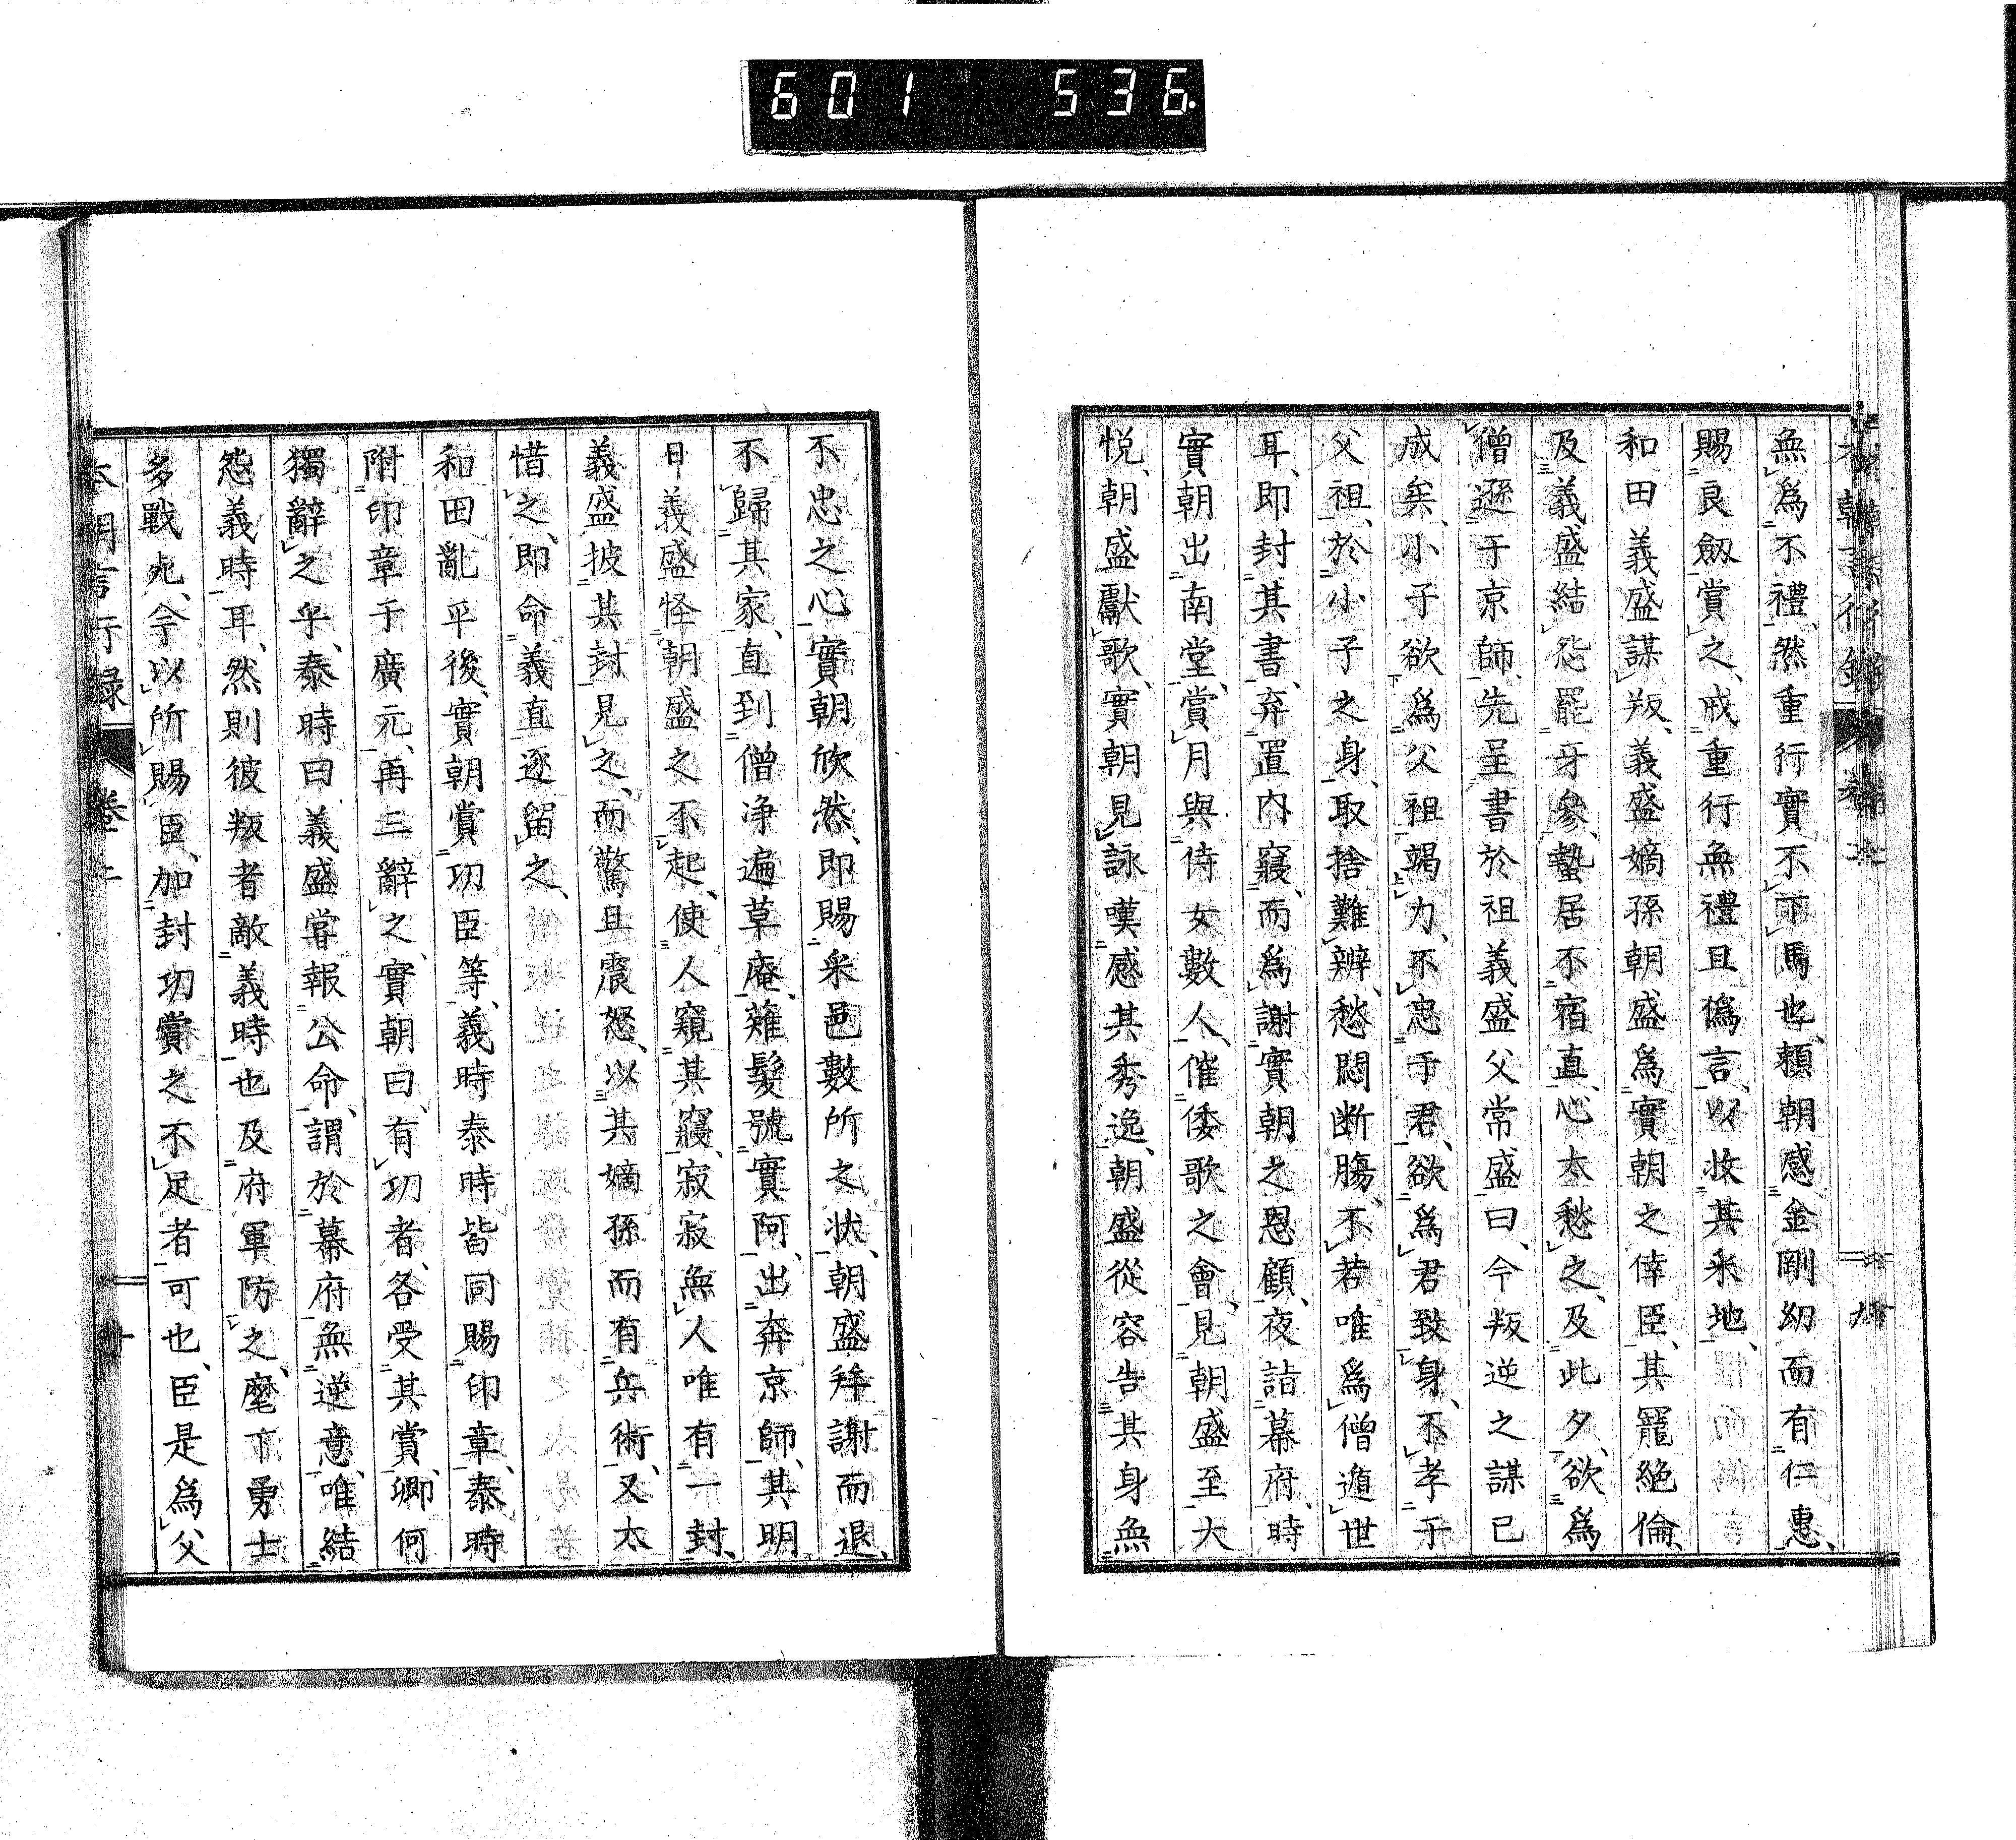 601 536
無爲不禮、然重行實不下馬也、頼朝感金剛幼而有仁惠、
賜良劔賞之、戒重行無禮且僞言、以收其釆地、
和田義盛謀叛、義盛嫡孫朝盛爲實朝之倖臣、其寵絶倫、
及義盛結怨罷牙參、蟄居不宿直、心太愁之、及此夕、欲爲
僧遜于京師、先呈書於祖義盛父常盛曰、今叛逆之謀已
成矣、小子欲爲父祖竭力、不忠于君、欲爲君致身、不孝于
父祖、於小子之身、取捨難辨、愁悶断膓、不若唯爲僧遁世
耳、即封其書、弃置内寢、而爲謝實朝之恩顧、夜詣幕府、時
實朝出南堂、賞月與侍女數人、催倭歌之會、見朝盛至大
悦、朝盛獻歌、實朝見詠嘆感其秀逸、朝盛從容告其身無
不忠之心、實朝欣然、即賜釆邑數所之状、朝盛拜謝而退、
不歸其家、直到僧浄遍草庵、薙髮號實阿、出奔京師、其明
日義盛怪朝盛之不起、使人窺其寢、寂寂無人唯有一封、
義盛披其封見之、而驚且震怒、以其嫡孫而有兵術、又太
惜之、即命義直逐留之、
和田亂平後、實朝賞功臣等、義時泰時皆同賜印章、泰時
附印章于廣元、再三辭之、實朝曰、有功者、各受其賞、卿何
獨辭之乎、泰時曰、義盛甞報公命、謂於幕府無逆意、唯結
怨義時耳、然則彼叛者敵義時也及府軍防之、麾下勇士
多戰死、今以所賜臣、加封功賞之不足者可也、臣是爲父
本朝言行録 卷二